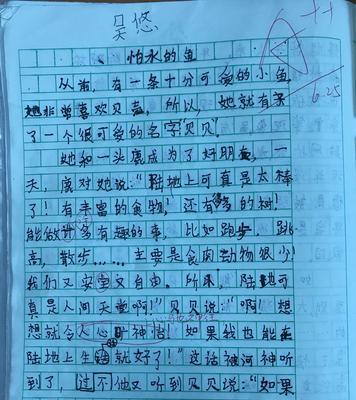 吴悠
怕水的鱼
A++
6.25
从前,有一条十分可爱的小鱼
她非常喜欢贝壳,所以,她就有
了一个很可爱的名字"贝贝"。
她和一头鹿成为了好朋友,一
天,鹿对她说:"陆地上可真是太棒
了!有丰富的食物!还有多的树!
能做许多有趣的事,比如跑步、跳
高、散步……主要是食肉动物很少!
我们又安全又自由。所以,陆地可
真是人间天堂啊!"贝贝说:"啊!想
想就令人心旷神怡!如果我也能在
陆地上生活就好了!"这话被河神听
到了,过不他又听到贝贝说:"如果